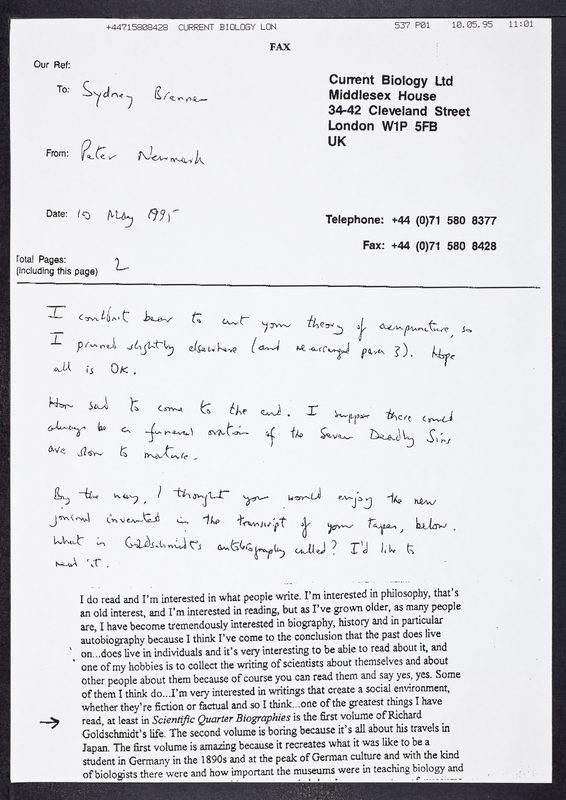 +44715808428 CURRENT BIOLOGY LON 537 P01 10.05.95 11:01
FAX
Our Ref:
To: Sydney Brenner
From: Peter Newmark
Date: 10 May 1995
Total Pages: 2
(including this page)
Current Biology Ltd
Middlesex House
34-42 Cleveland Street
London W1P 5FB
UK
Telephone: +44 (0)71 580 8377
Fax: +44 (0)71 580 8428
I couldn't bear to cut your theory of acupuncture, so
I pruned slightly elsewhere (and rearranged para 3). Hope
all is OK.
How sad to come to the end. I suppose there could
always be a funeral oration if the Seven Deadly Sins
are slow to mature.
By the way, I thought you would enjoy the new
journal invented in the transcript of your tapes, below.
What is Goldschmidt's autobiography called? I'd like to
read it.
I do read and I'm interested in what people write. I'm interested in philosophy, that's
an old interest, and I'm interested in reading, but as I've grown older, as many people
are, I have become tremendously interested in biography, history and in particular
autobiography because I think I've come to the conclusion that the past does live
on...does live in individuals and it's very interesting to be able to read about it, and
one of my hobbies is to collect the writing of scientists about themselves and about
other people about them because of course you can read them and say yes, yes. Some
of them I think do...I'm very interested in writings that create a social environment,
whether they're fiction or factual and so I think...one of the greatest things I have
read, at least in Scientific Quarter Biographies is the first volume of Richard
Goldschmidt's life. The second volume is boring because it's all about his travels in
Japan. The first volume is amazing because it recreates what it was like to be a
student in Germany in the 1890s and at the peak of German culture and with the kind
of biologists there were and how important the museums were in teaching biology and